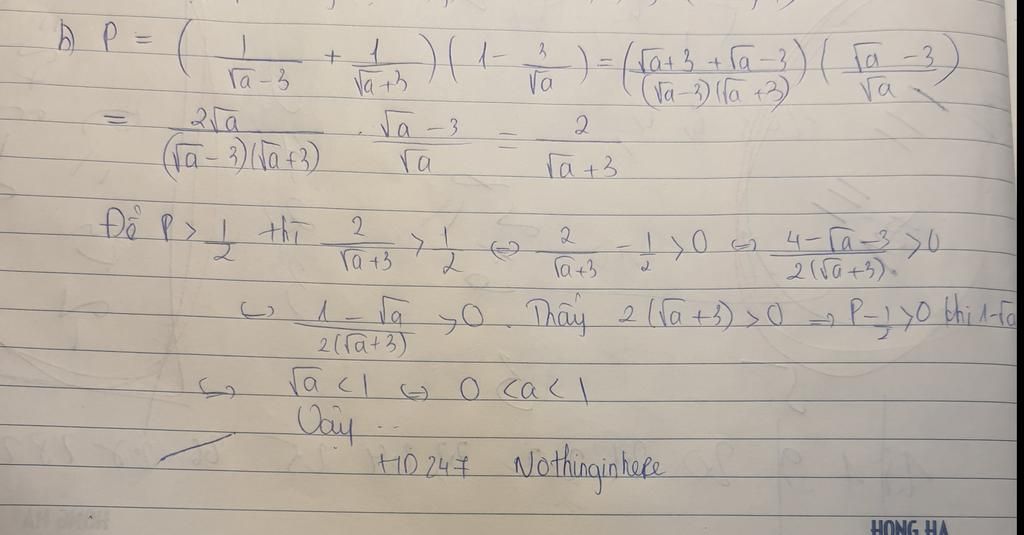 b) P = ( 1/(√a - 3) + 1/(√a + 3) ) ( 1 - 3/√a ) = ( (√a + 3 + √a - 3)/((√a - 3)(√a + 3)) ) ( (√a - 3)/√a )
= 2√a/((√a - 3)(√a + 3)) . (√a - 3)/√a = 2/(√a + 3)
Để P > 1/2 thì 2/(√a + 3) > 1/2 ⇔ 2/(√a + 3) - 1/2 > 0 ⇔ (4 - √a - 3)/(2(√a + 3)) > 0
⇔ (1 - √a)/(2(√a + 3)) > 0. Thấy 2(√a + 3) > 0 ⇒ P - 1/2 > 0 khi 1 - √a
⇔ √a < 1 ⇔ 0 < a < 1
Vậy ..
HD247 Nothinginhere
HONG HA